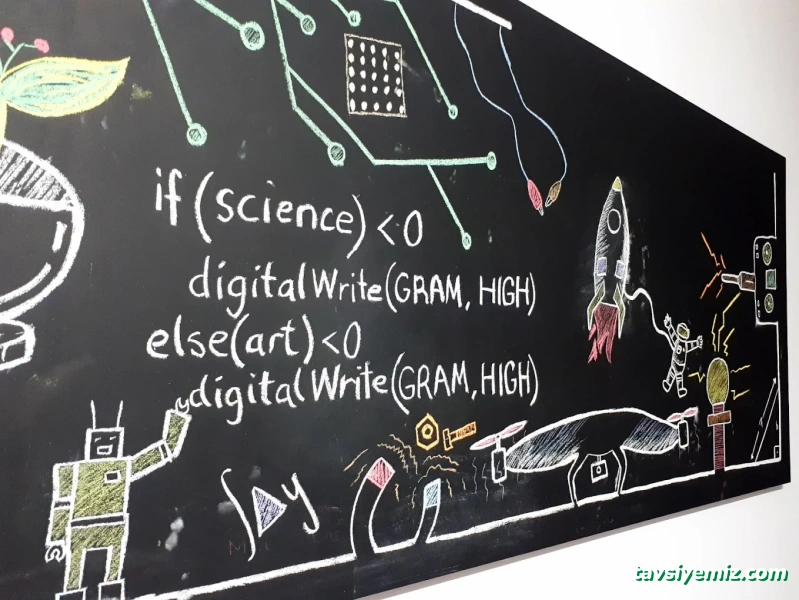 if (science) <0
digitalWrite(GRAM, HIGH)
else(art) <0
digitalWrite(GRAM, HIGH)
tavsiyemiz.com